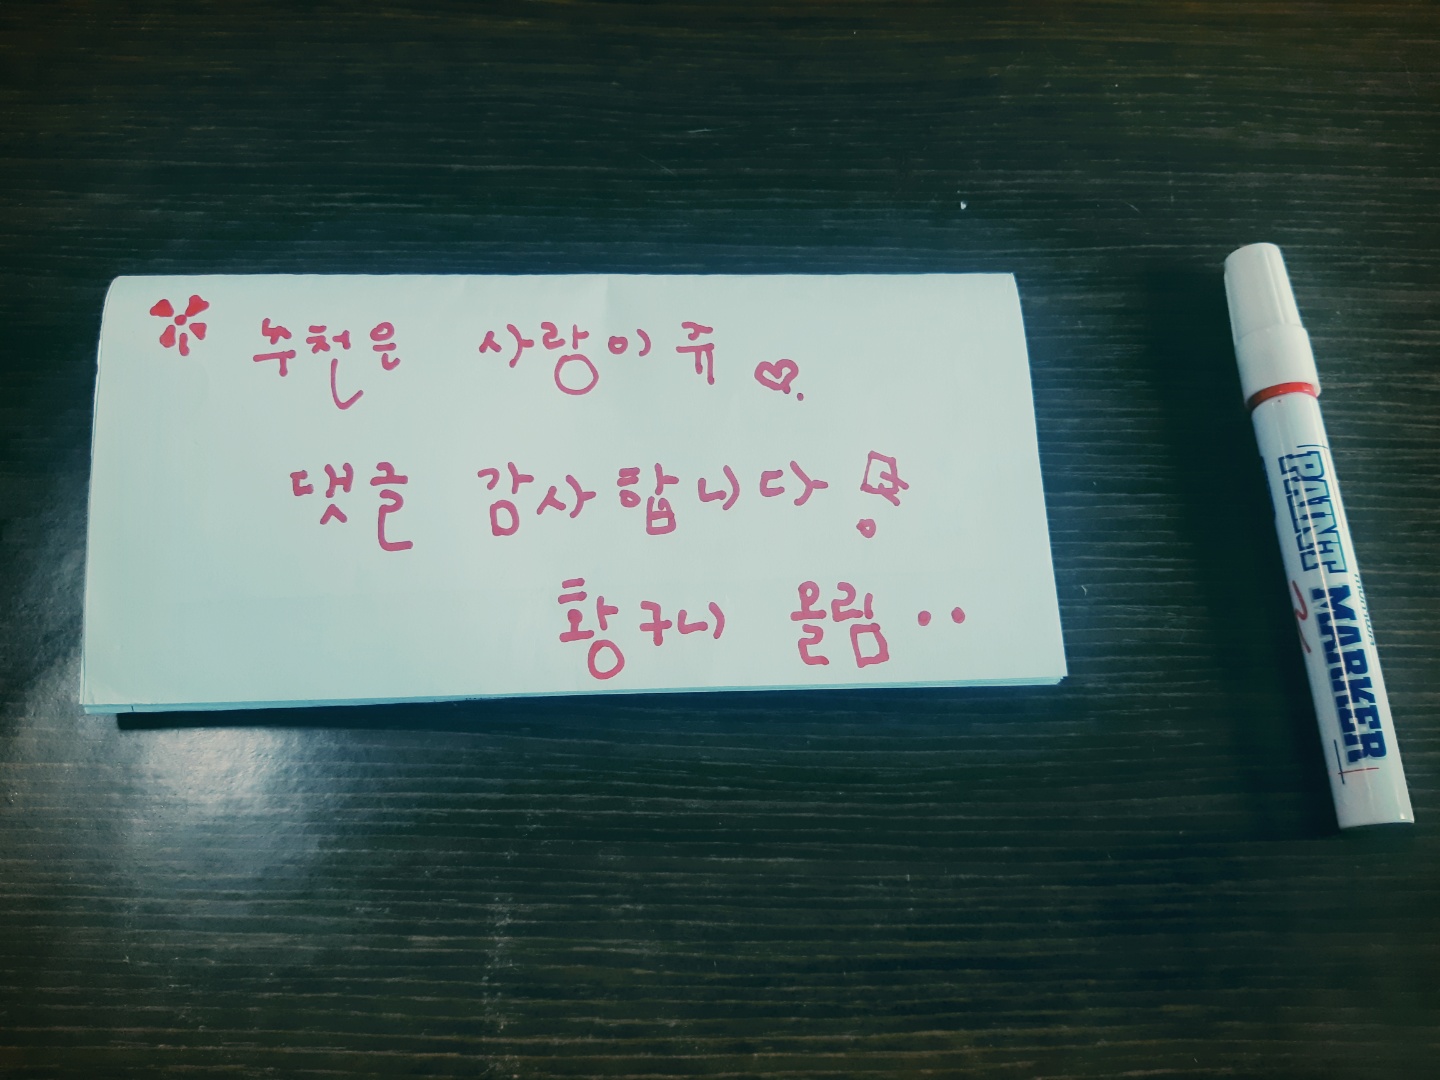 추천은 사랑이쥬♡.
댓글 감사합니다
황구니 올림..
PAINT MARKER